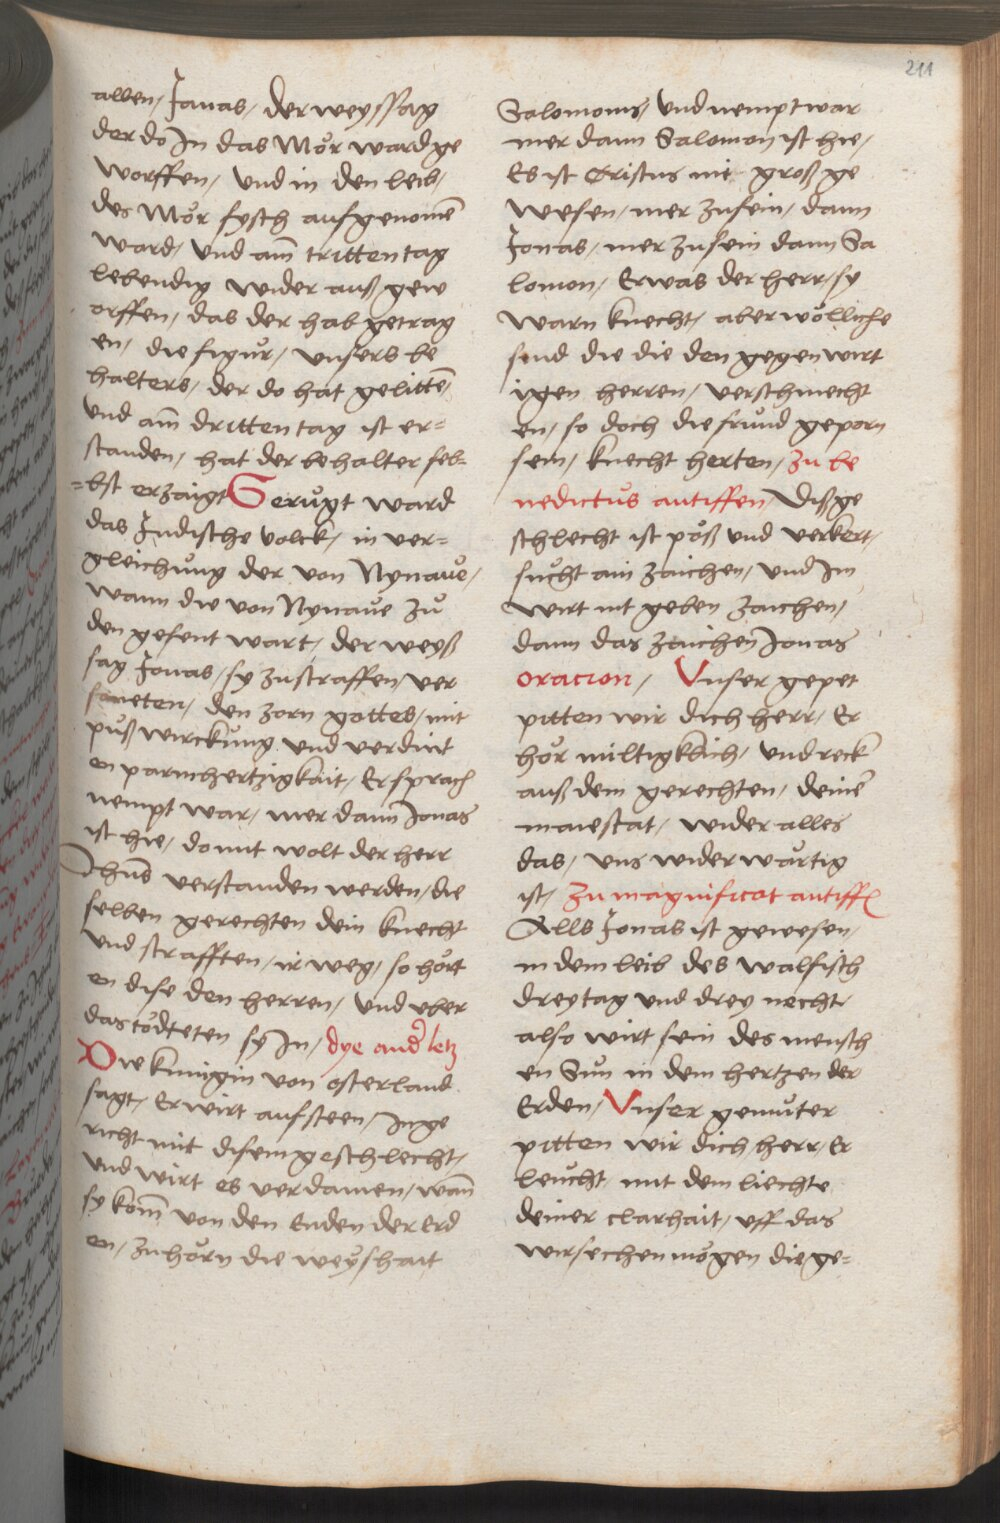 211
alben / Jonas / der weyssag
der do In das Mör ward ge
worffen / Und in den leib /
des Mör fysch aufgenomē
ward / Und am̄ tritten tag
lebendig wider auß gew
orffen / das der hab getrag
en / die figur / unsers be
halters / der do hat gelittē /
Und am̄ dritten tag ist er=
standen / hat der behalter sel=
=bst erzaigt Gerugt ward
das Jndische volck / in ver=
gleichung der von Nynaue /
wann die von Nynaue zu
den gesent wart / der weyß
sag Jonas / sy zustraffen / ver
soneten / den zorn gottes / mit
puß wirckung und verdint
en parmhertzigkait / Er sprach
nempt war / mer dann Jonas
ist hie / domit wolt der herr
Jhūs verstanden werden / die
selben gerechten dein knecht
Und strafften / ir weg / so hört
en dise den herren / Und uber
das tödteten sy In / dye and̄ letz
Die kunigin von osterland
sagt / Er wirt aufsteen / In ge
richt mit disem geschlecht /
Und wirt es verdamen / wan̄
sy kom̄ von den Enden der Erd
en / zuhörn die weyshait
Salomonis / Und nempt war
mer dann Salomon ist hie /
Es ist Cristus nit groß ge
wesen / mer zusein / dann
Jonas / mer zusein dann Sa
lomon / Er was der herr / sy
warn knecht / aber wölliche
send die die den gegenwirt
igen herren / verschmecht
en / so doch die frund geporn
sein / knecht herten / zu be
nedictus antiffen / Diß ge
schlecht ist pöß und verkert /
sucht ain zaichen / und Im
wirt nit geben zaichen /
dann das zaichen Jonas
oracion / Unser gepet
pitten wir dich herr / Er
hör miltigklich / und reck
auß dem gerechten / deinē
maiestat / wider alles
das / uns widerwärtig
ist / zu magnificat antiff
Alls Jonas ist gewesen /
in dem leib des walfisch
drey tag und drey necht /
also wirt sein des mensch
en Sun in dem hertzen der
Erden / Unser gemuter
pitten wir dich herr / Er
leucht mit dem liechte
deiner clarhait / uff das
wir sechen mögen die ge=